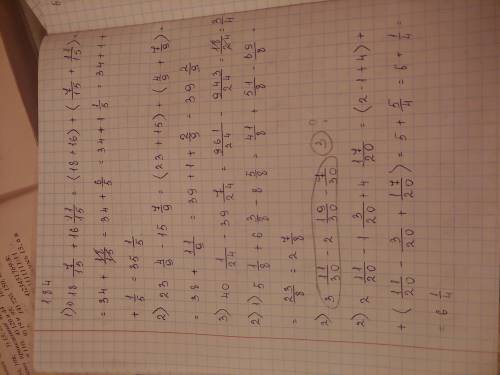 184
1) a) 18 7/15 + 16 11/15 = (18+16) + (7/15 + 11/15) =
= 34 + 18/15 = 34 + 6/5 = 34 + 1 1/5 = 34 + 1 +
+ 1/5 = 35 1/5
2) 23 4/9 - 15 7/9 = (23 + 15) + (4/9 + 7/9) =
= 38 + 11/9 = 39 + 1 + 2/9 = 39 2/9
3) 40 1/24 - 39 7/24 = 961/24 - 943/24 = 18/24 = 3/4
2) 1) 5 1/8 + 6 3/8 - 8 5/8 = 41/8 + 51/8 - 69/8 =
= 23/8 = 2 7/8
2) 3 11/30 - 2 19/30 - 7/30 3) ?
2) 2 11/20 - 1 3/20 + 4 17/20 = (2 - 1 + 4) +
+ (11/20 - 3/20 + 17/20) = 5 + 5/4 = 6 + 1/4 =
= 6 1/4